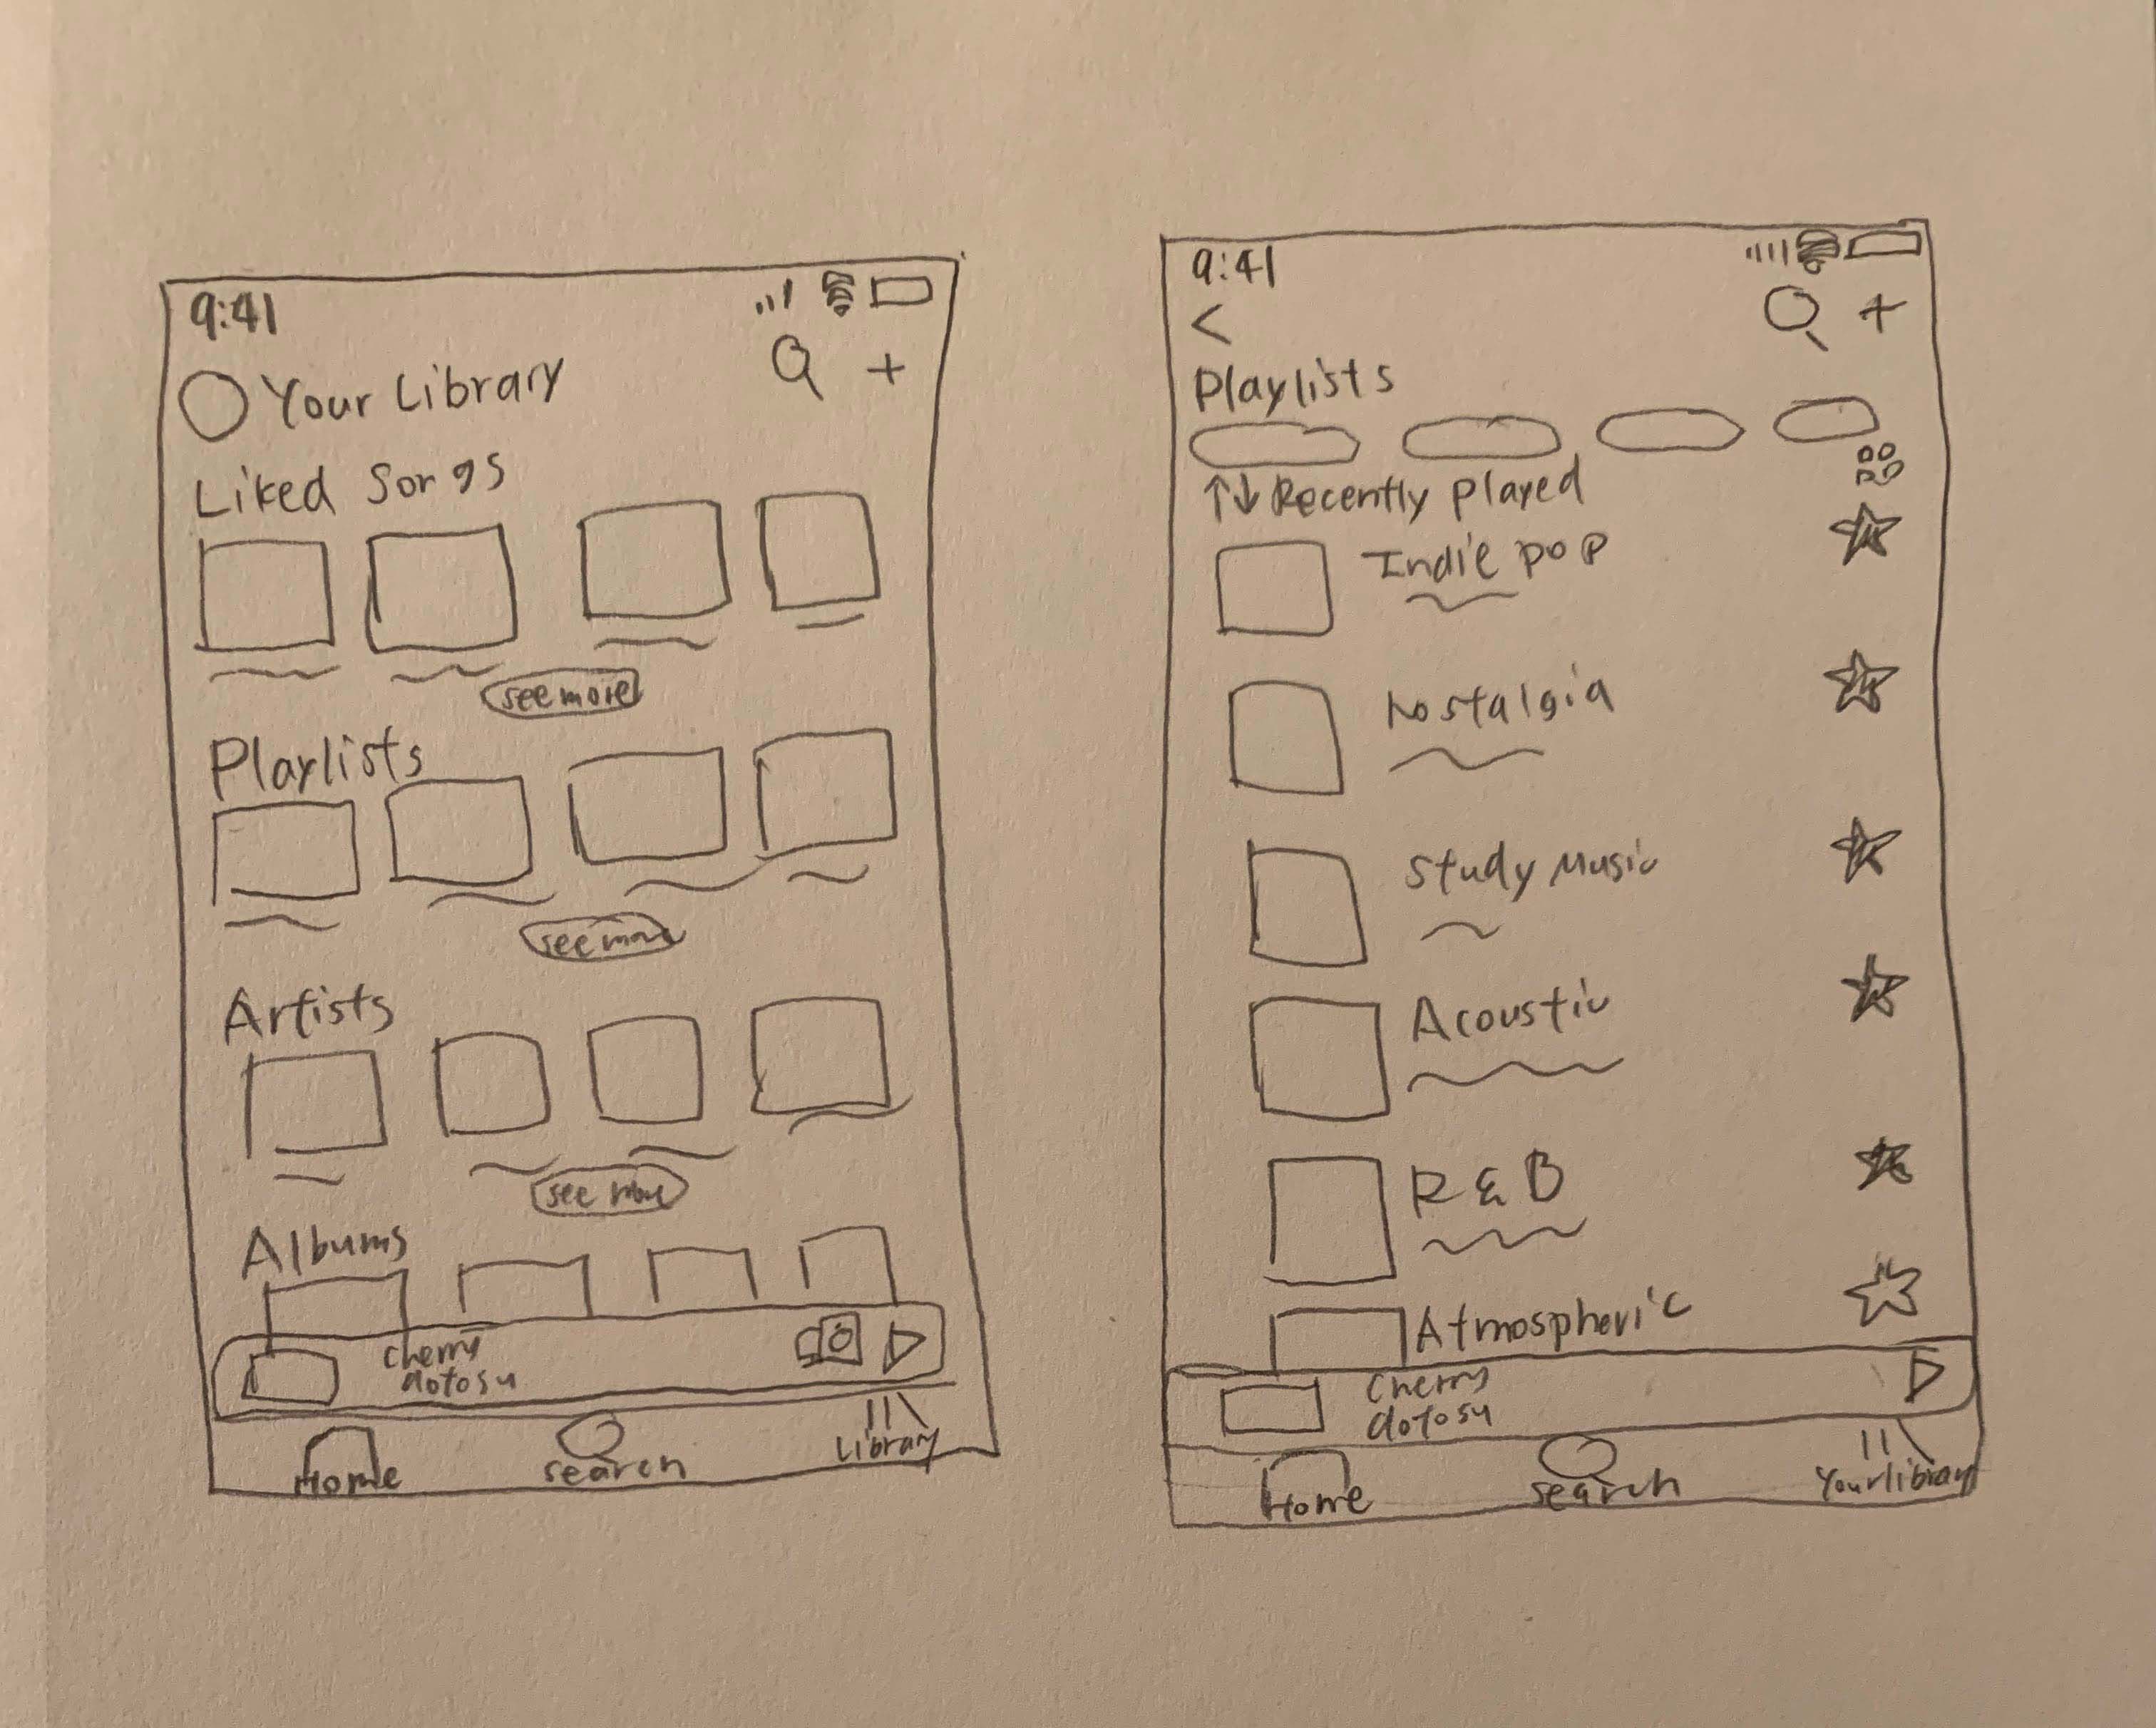 9:41
Your Library
Liked Songs
see more
Playlists
see more
Artists
see more
Albums
cherry
dotosu
Home
search
Library
9:41
<
Playlists
↑↓ Recently played
Indie pop
Nostalgia
Study Music
Acoustic
R&B
Atmospheric
cherry
dotosu
Home
search
Your library